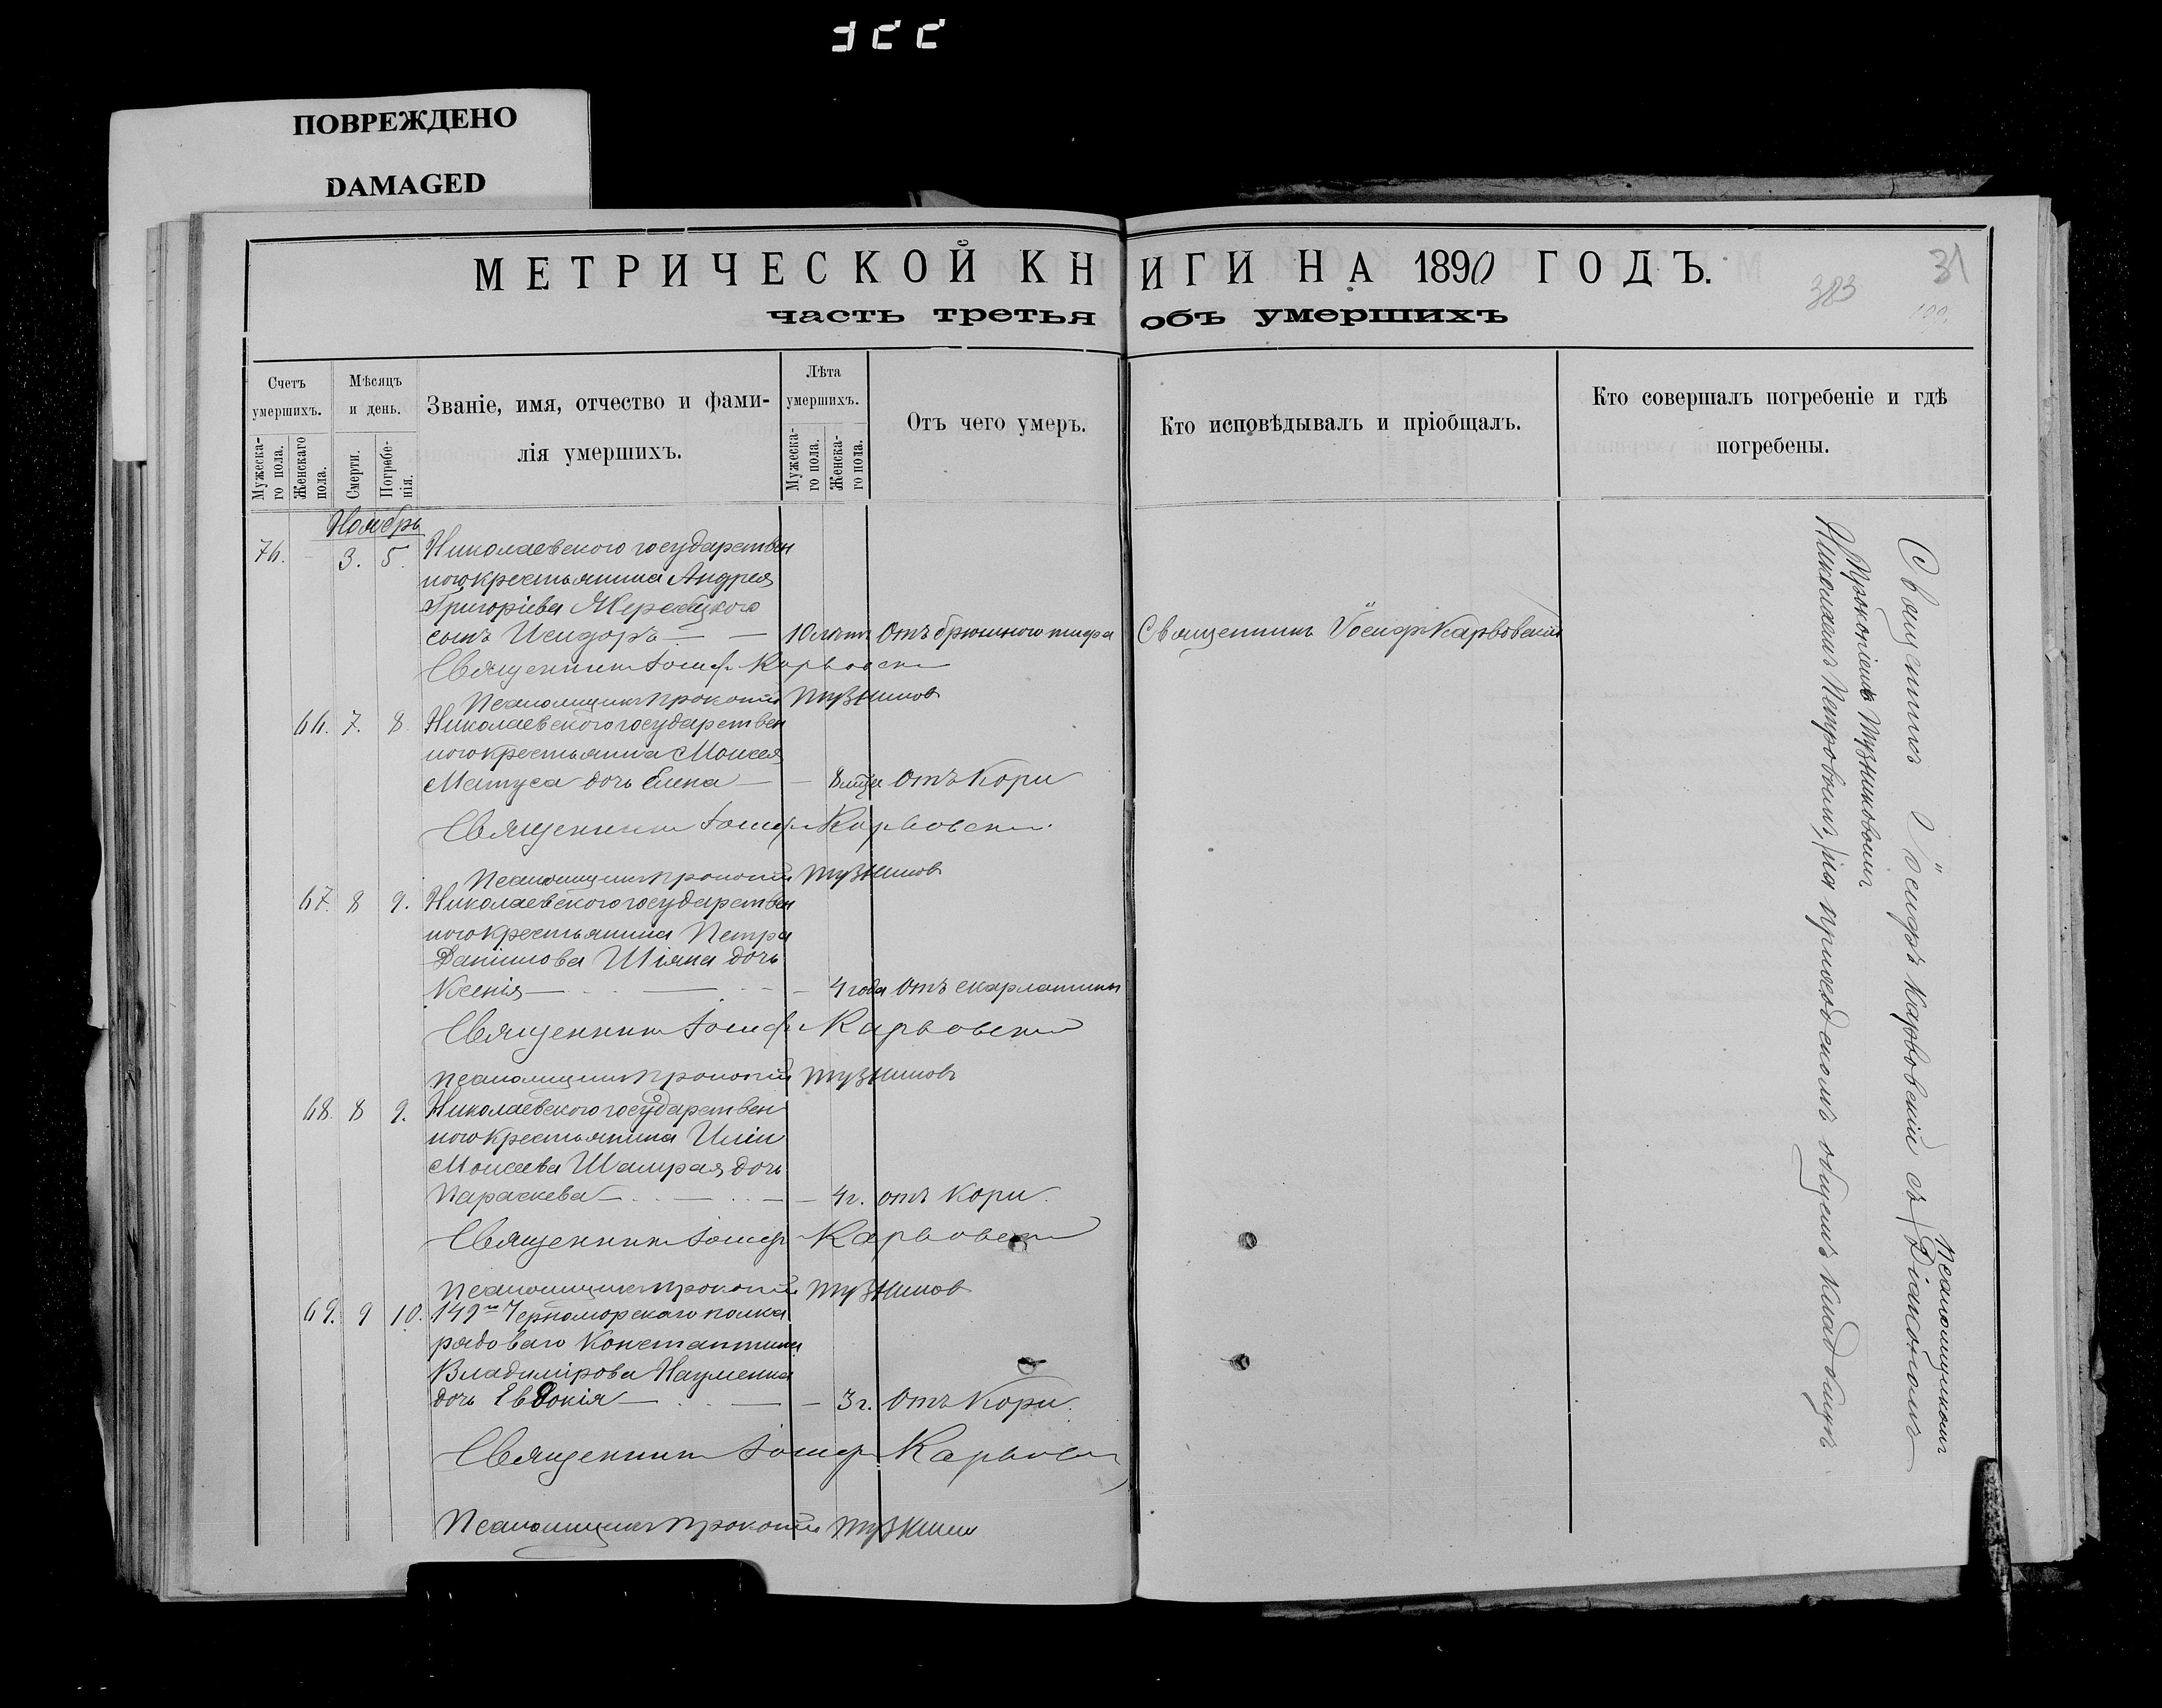 ПОВРЕЖДЕНО
DAMAGED
МЕТРИЧЕСКОЙ КНИГИ НА 1890 ГОДЪ.
часть третья объ умершихъ
383
31
100.
Счетъ умершихъ.
Мѣсяцъ и день.
Званіе, имя, отчество и фами-
лія умершихъ.
Лѣта умершихъ.
Отъ чего умеръ.
Кто исповѣдывалъ и пріобщалъ.
Кто совершалъ погребеніе и гдѣ
погребены.
Мужеска-
го пола.
Женскаго
пола.
Смерти.
Погребе-
нія.
Мужеска-
го пола.
Женска-
го пола.
Ноябрь
76. – 3. 5. Николаевского государствен
ного крестьянина Андрея
Григоріева
сынъ Исидоръ — — 10 лѣтъ Отъ брюшного тифа Священникъ Іосифъ Карвовскій
Священникъ Іосиф Карвовскій
Псаломщикъ Прокопій Тузниковъ
66. 7. 8 Николаевского государствен
ного крестьянина Моисея
Матуса дочь Елена — – 8 мѣца Отъ Кори
Священникъ Іосиф Карвовскій
Псаломщикъ Прокопій Тузниковъ
67. 8 9. Николаевского государствен
ного крестьянина Петра
Данилова Шіяна дочь
Ксенія — — – 4 года Отъ скарлатины
Священникъ Іосиф Карвовскій
Псаломщикъ Прокопій Тузниковъ
68. 8 9. Николаевского государствен
ного крестьянина Иліи
Моисеева Шамрая дочь
Параскева — — – 4 г. отъ Кори.
Священникъ Іосиф Карвовскій
Псаломщикъ Прокопій Тузниковъ
69. 9 10. 149го Черноморскаго полка
рядоваго Константина
Владимірова Науменка
дочь Евдокія — — – 3 г. Отъ Кори.
Священникъ Іосиф Карвовскій
Псаломщикъ Прокопій Тузниковъ
Священникъ Іосифъ Карвовскій съ Діакономъ
Псаломщикомъ
Прокопіемъ Тузниковымъ
Николаемъ Петровымъ, на приходскомъ общемъ кладбищѣ